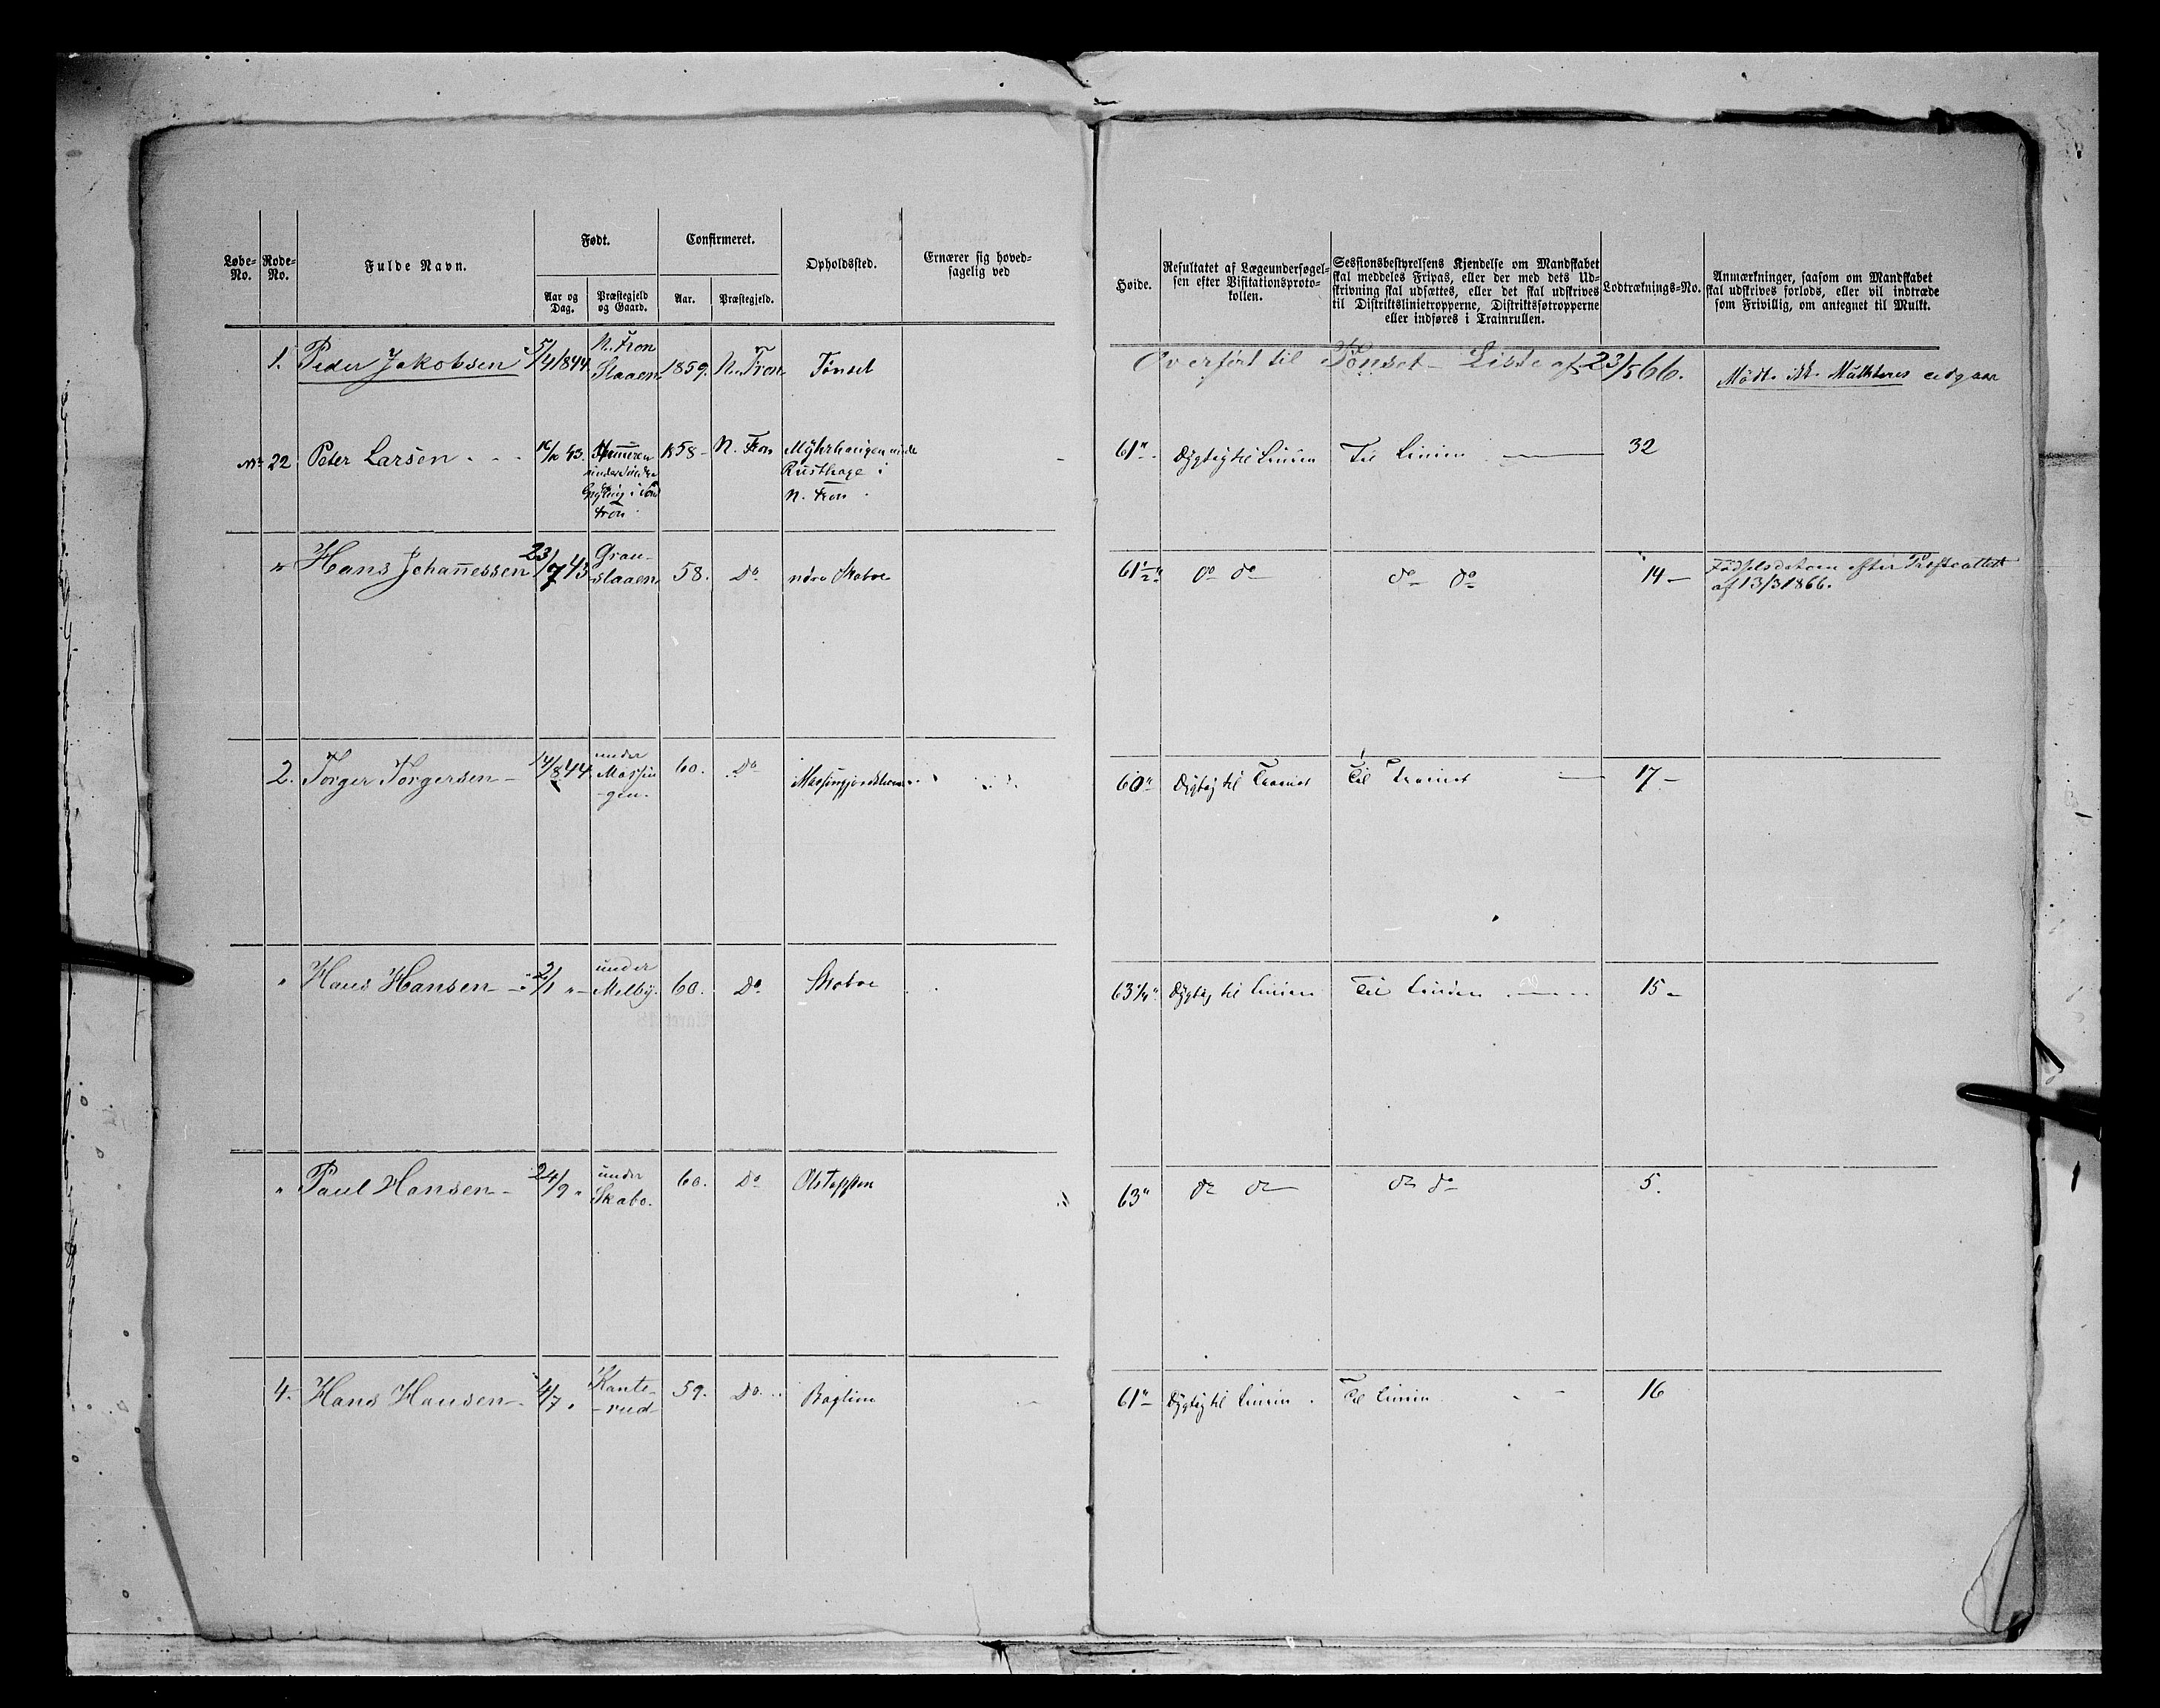 Løbe-No.
Rode-No.
Fulde Navn.
Født.
Aar og Dag.
Præstegjeld og Gaard.
Confirmeret.
Aar.
Præstegjeld.
Opholdssted.
Ernærer sig hoved-
sagelig ved
Høide.
Resultatet af Lægeundersøgel-
sen efter Visitationsproto-
kollen.
Sessionsbestyrelsens Kjendelse om Mandskabet
skal meddeles Fripas, eller der med dets Ud-
skrivning skal udsættes, eller det skal udskrives
til Distriktslinietropperne, Distriktsfotropperne
eller indføres i Trainrullen.
Lodtræknings-No.
Anmærkninger, saasom om Mandskabet
skal udskrives forlods, eller vil indtræde
som Frivillig, om antegnet til Mulkt.
1. Peder Jakobsen 5/4 1844 N. Fron Slaaen 1859. N. Fron Tønset
Overført til Tønset Liste af 23/5 66. Mödt. ikk. Mulkteres
22 Peter Larsen 43. 1858 N. Fron
N. Fron
61" Dygtig til Linien Til Linien 32
" Hans Johannessen 23/7 43 Grau-
slaaen 58. Do Skaboe
61 1/2" do do do do 14 Fødselsdatoen efter
af 13/3 1866.
2. Torger Torgersen 14/8 44 under
Massin
-gen. 60. Do
60" Dygtig til Trainet Til Trainet 17
" Hans Hansen 2/1 " under
Melby. 60. Do Skaboe
63 1/4" Dygtig til Linien Til Linien 15
" Paul Hansen 24/9 " under
Skabo. 60. Do Olstappen
63" do do do do 5.
4. Hans Hansen 4/7 " Kante-
-rud 59. Do Baglien
61" Dygtig til Linien Til Linien 16